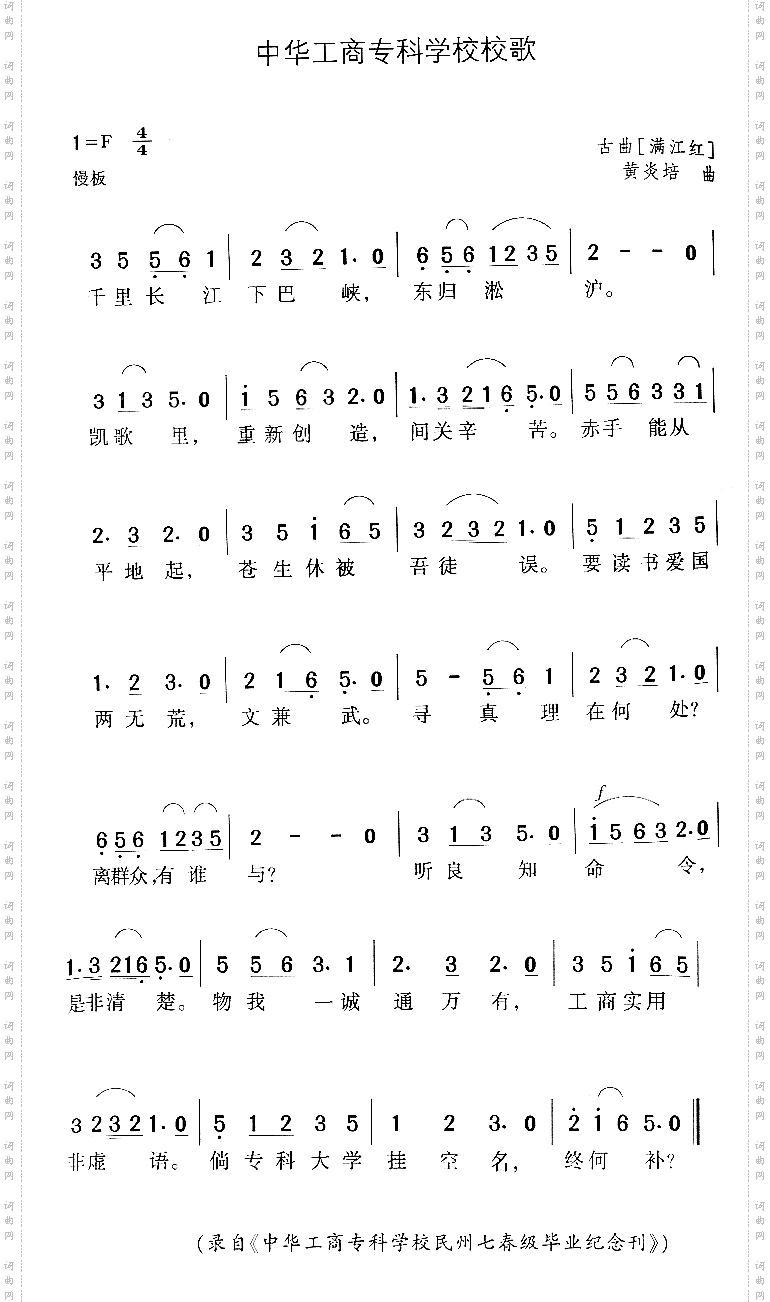 中华工商专科学校校歌
1=F 4/4
古曲[满江红]
慢板
黄炎培 曲
3 5 5 6 1 | 2 3 2 1· 0 | 6 5 6 1 2 3 5 | 2 - - 0 |
千里长 江 下巴 峡， 东归 淞 沪。
3 1 3 5· 0 | i 5 6 3 2· 0 | 1· 3 2 1 6 5· 0 | 5 5 6 3 3 1 |
凯歌 里， 重新创 造， 间关辛 苦。 赤手 能从
2· 3 2· 0 | 3 5 i 6 5 | 3 2 3 2 1· 0 | 5 1 2 3 5 |
平地 起， 苍生休被 吾徒 误。 要读书爱国
1· 2 3· 0 | 2 1 6 5· 0 | 5 - 5 6 1 | 2 3 2 1· 0 |
两无荒， 文兼 武。 寻 真 理 在何 处？
6 5 6 1 2 3 5 | 2 - - 0 | 3 1 3 5· 0 | f i 5 6 3 2· 0 |
离群众，有 谁 与？ 听良 知 命 令，
1· 3 2 1 6 5· 0 | 5 5 6 3· 1 | 2· 3 2· 0 | 3 5 i 6 5 |
是非清 楚。 物我 一诚 通 万 有， 工商实用
3 2 3 2 1· 0 | 5 1 2 3 5 | 1 2 3· 0 | 2 i 6 5· 0 ‖
非虚 语。 倘专科大学 挂 空 名， 终何 补？
(录自《中华工商专科学校民州七春级毕业纪念刊》)
词曲网